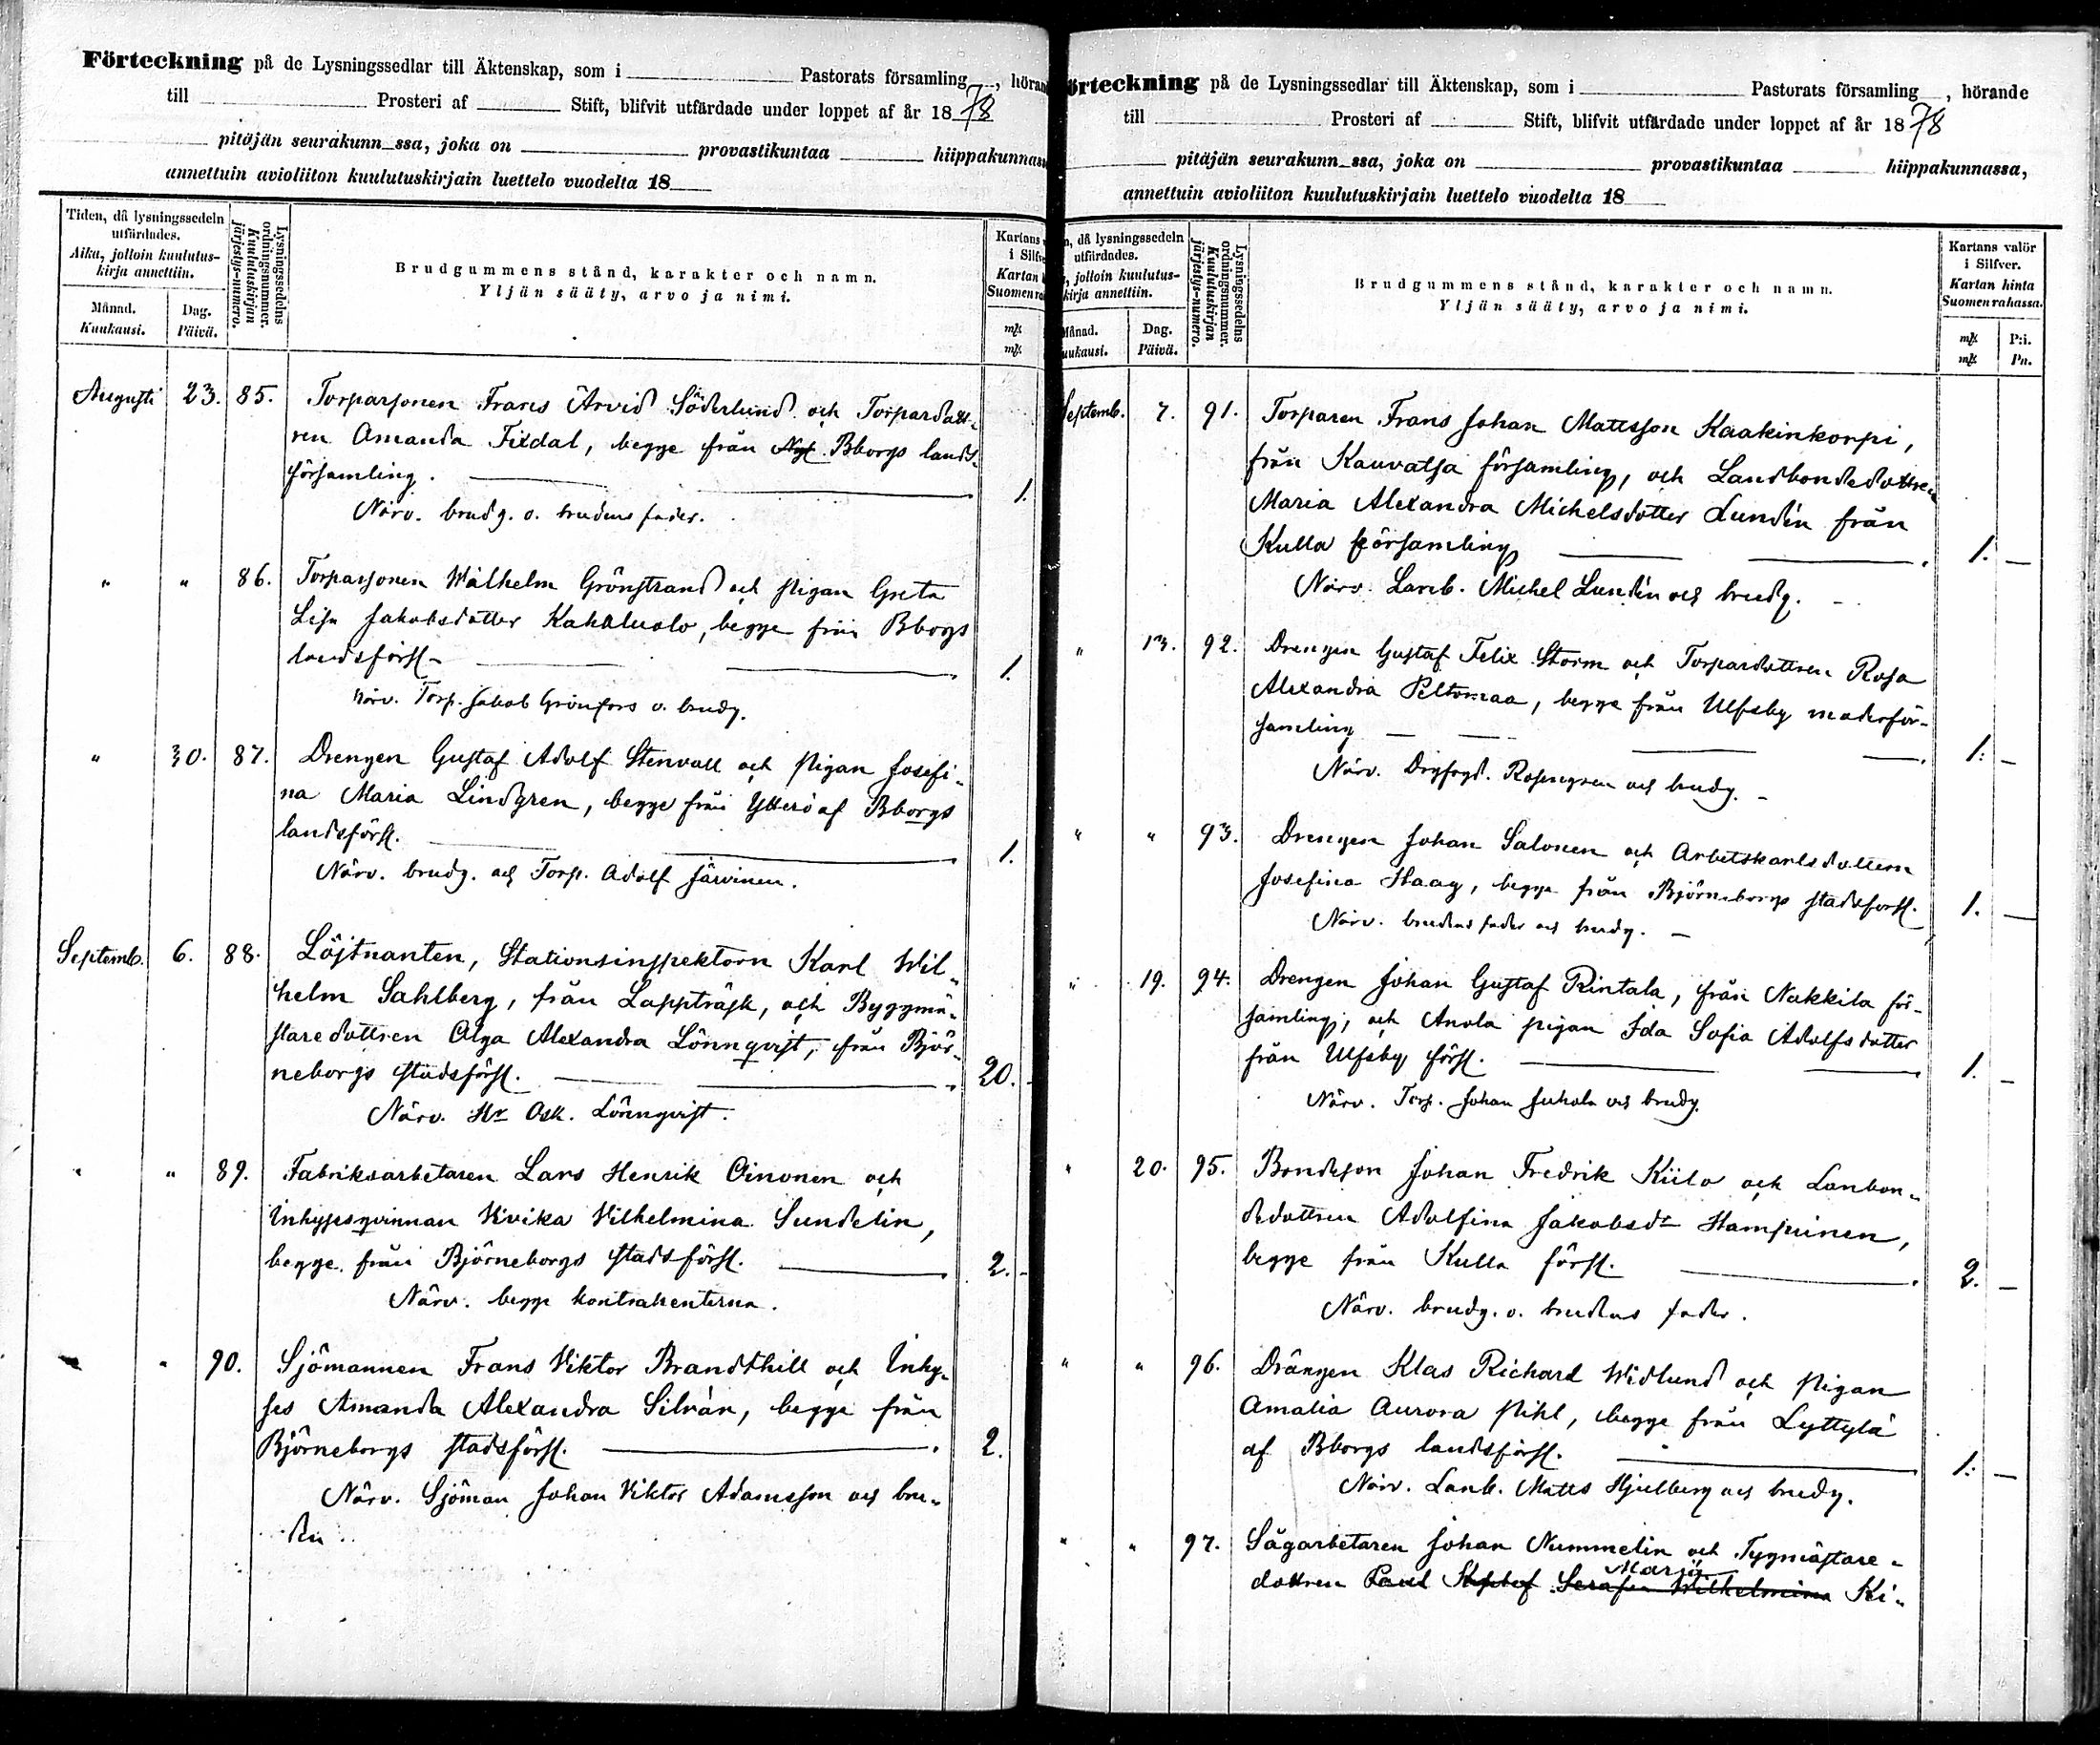 Förteckning på de Lysningssedlar till Äktenskap, som i Pastorats församling , hörande
till Prosteri af Stift, blifvit utfärdade under loppet af år 1878
pitäjän seurakunn ssa, joka on provastikuntaa hiippakunnassa
annettuin avioliiton kuulutuskirjain luettelo vuodelta 18
Tiden, då lysningssedeln
utfärdades.
Aika, jolloin kuulutus-
kirja annettiin.
Månad.
Kuukausi.
Dag.
Päivä.
Lysningssedelns
ordningsnummer.
Kuulutuskirjan
järjestys-numero.
Brudgummens stånd, karakter och namn.
Yljän sääty, arvo ja nimi.
Kartans
i Silfv
Kartan
Suomen ra
mk
mk
Augusti 23. 85. Torparsonen Frans Arvid Söderlund och Torpardott-
ren Amanda Fixdal, begge från Bborgs lands-
församling. 1.
Närv. brudg. o. brudens fader.
" " 86. Torparsonen Wilhelm Grönstrand och pigan Greta
Lisa Jakobsdotter Kahaluolo, begge från Bborgs
landsförsl. 1.
Närv. Torp. Jakob Grönfors o. brudg.
" 30. 87. Drengen Gustaf Adolf Stenvall och pigan Josefi-
na Maria Lindgren, begge från Ytterö af Bborgs
landsförsl. 1.
Närv. brudg. och Torp. Adolf Järvinen.
Septemb. 6. 88. Löjtnanten, Stationsinspektorn Karl Wil-
helm Sahlberg, från Lappträsk, och Byggmä-
stare dottren Olga Alexandra Lönnqvist, från Björ-
neborgs stadsförsl. 20.
Närv. Hr Osk. Lönnqvist.
" " 89. Fabriksarbetaren Lars Henrik Oinonen och
Inhysesqvinnan Vivika Vilhelmina Sundelin,
begge från Björneborgs stadsförsl. 2.
Närv. begge kontrahenterna.
" " 90. Sjömannen Frans Viktor Brandthill och Inhy-
ses Amanda Alexandra Silván, begge från
Björneborgs stadsförsl. 2.
Närv. Sjöman Johan Viktor Adamsson och bru-
den.
Förteckning på de Lysningssedlar till Äktenskap, som i Pastorats församling , hörande
till Prosteri af Stift, blifvit utfärdade under loppet af år 1878
pitäjän seurakunn ssa, joka on provastikuntaa hiippakunnassa,
annettuin avioliiton kuulutuskirjain luettelo vuodelta 18
n, då lysningssedeln
utfärdades.
, jolloin kuulutus-
kirja annettiin.
Månad.
uukausi.
Dag.
Päivä.
Lysningssedelns
ordningsnummer.
Kuulutuskirjan
järjestys-numero.
Brudgummens stånd, karakter och namn.
Yljän sääty, arvo ja nimi.
Kartans valör
i Silfver.
Kartan hinta
Suomen rahassa.
mk P:i.
mk Pn.
Septemb. 7. 91. Torparen Frans Johan Mattsson Kaakinkorpi,
från Kauvatsa församling, och Landbondedottren
Maria Alexandra Michelsdotter Lundén från
Kulla församling 1. —
Närv. Lanb. Michel Lundén och brudg.
" 13. 92. Drengen Gustaf Felix Storm och Torpardottren Rosa
Alexandra Peltomaa, begge från Ulfsby moderför-
samling 1. —
Närv. Rosengren och brudg.
" " 93. Drengen Johan Salonen och Arbetskarlsdottern
Josefina Haag, begge från Björneborgs stadsförsl. 1. —
Närv. brudens fader och brudg.
" 19. 94. Drengen Johan Gustaf Rintala, från Nakkila för-
samling, och Anola pigan Ida Sofia Adolfsdotter
från Ulfsby försl. 1. —
Närv. Torp. Johan Juhola och brudg.
" 20. 95. Bondeson Johan Fredrik Kiilo och Lanbon-
dedottren Adolfina Jakobsdr Hampuinen,
begge från Kulla försl. 2. —
Närv. brudg. o. brudens fader.
" " 96. Drängen Klas Richard Widlund och pigan
Amalia Aurora Pihl, begge från Lyttylä
af Bborgs landsförsl. 1. —
Närv. Lanb. Matts Hjulberg och brudg.
" " 97. Sågarbetaren Johan Nummelin och Tygmästare-
Maria
dottren Serafia Wilhelmina Ki-